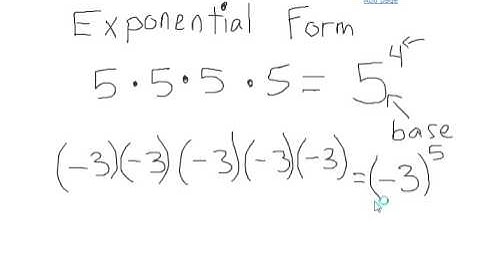 Exponential Form
5 · 5 · 5 · 5 = 5⁴
base
(-3)(-3)(-3)(-3)(-3) = (-3)⁵